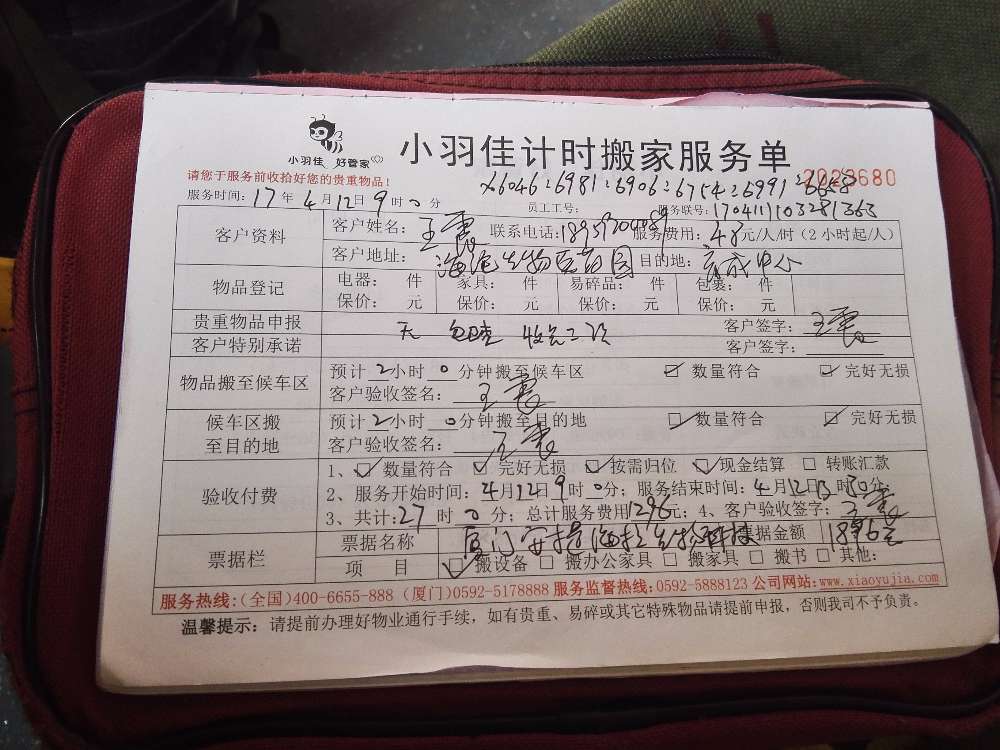 小羽佳 好管家
小羽佳计时搬家服务单
请您于服务前收拾好您的贵重物品！
服务时间：17年4月12日9时0分 员工工号： 服务联号：
客户资料 客户姓名：王震 联系电话： 服务费用：48元/人/时（2小时起/人）
客户地址：海沧生物医药园 目的地：
物品登记 电器： 件 家具： 件 易碎品： 件 包裹： 件
保价： 元 保价： 元 保价： 元 保价： 元
贵重物品申报 无 客户签字：王震
客户特别承诺 客户签字：
物品搬至候车区 预计2小时0分钟搬至候车区 数量符合 完好无损
客户验收签名：王震
候车区搬至目的地 预计2小时0分钟搬至目的地 数量符合 完好无损
客户验收签名：王震
验收付费 1、数量符合 完好无损 按需归位 现金结算 转账汇款
2、服务开始时间：4月12日9时0分；服务结束时间：4月12日13时30分；
3、共计：27时0分；总计服务费用1296元；4、客户验收签字：王震
票据栏 票据名称 票据金额 1896元
项 目 搬设备 搬办公家具 搬家具 搬书 其他：
服务热线：(全国)400-6655-888 (厦门)0592-5178888 服务监督热线：0592-5888123 公司网站：www.xiaoyujia.com
温馨提示：请提前办理好物业通行手续，如有贵重、易碎或其它特殊物品请提前申报，否则我司不予负责。